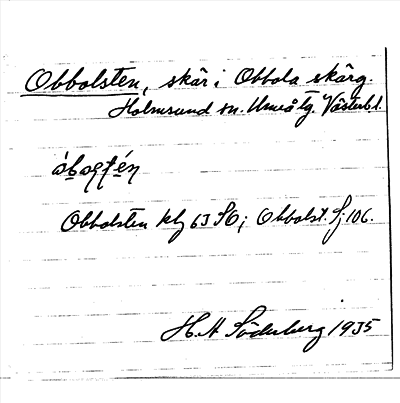 Obbolsten, skär i Obbola skärg.
Holmsund sn. Umeå tg. Västerb. l.
Obbolsten klg 63 SO; Obbolst. Sj. 106.
H. A. Söderberg 1935